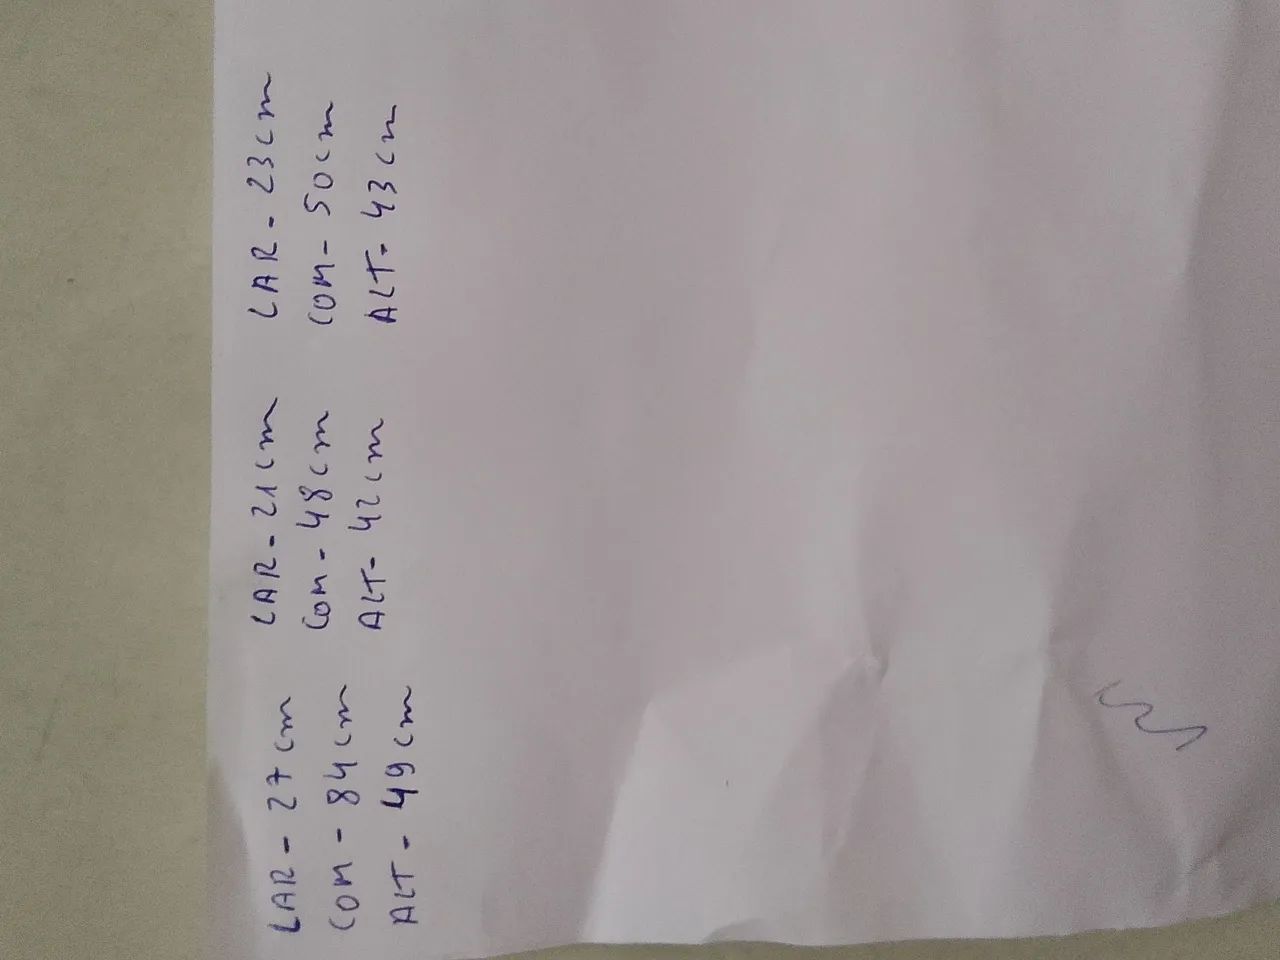 LAR - 27cm
COM - 84cm
ALT - 49cm
LAR - 21cm
COM - 48cm
ALT - 42cm
LAR - 23cm
COM - 50cm
ALT - 43cm